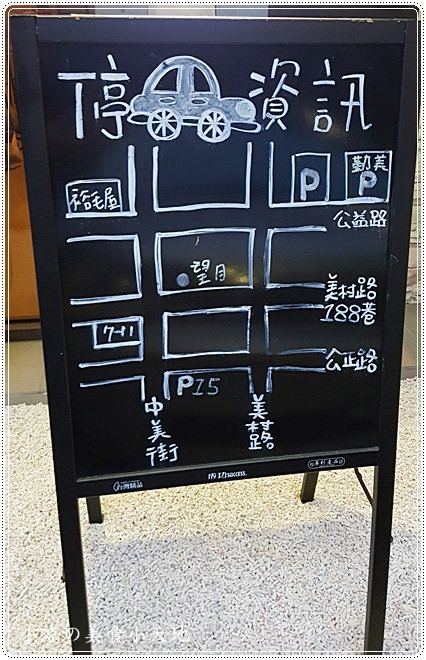 停 資訊
裕毛屋
P
勤美
P
公益路
望月
美村路
188巷
7-11
公正路
P15
中美街
美村路
台灣精品
成功success.
專利產品